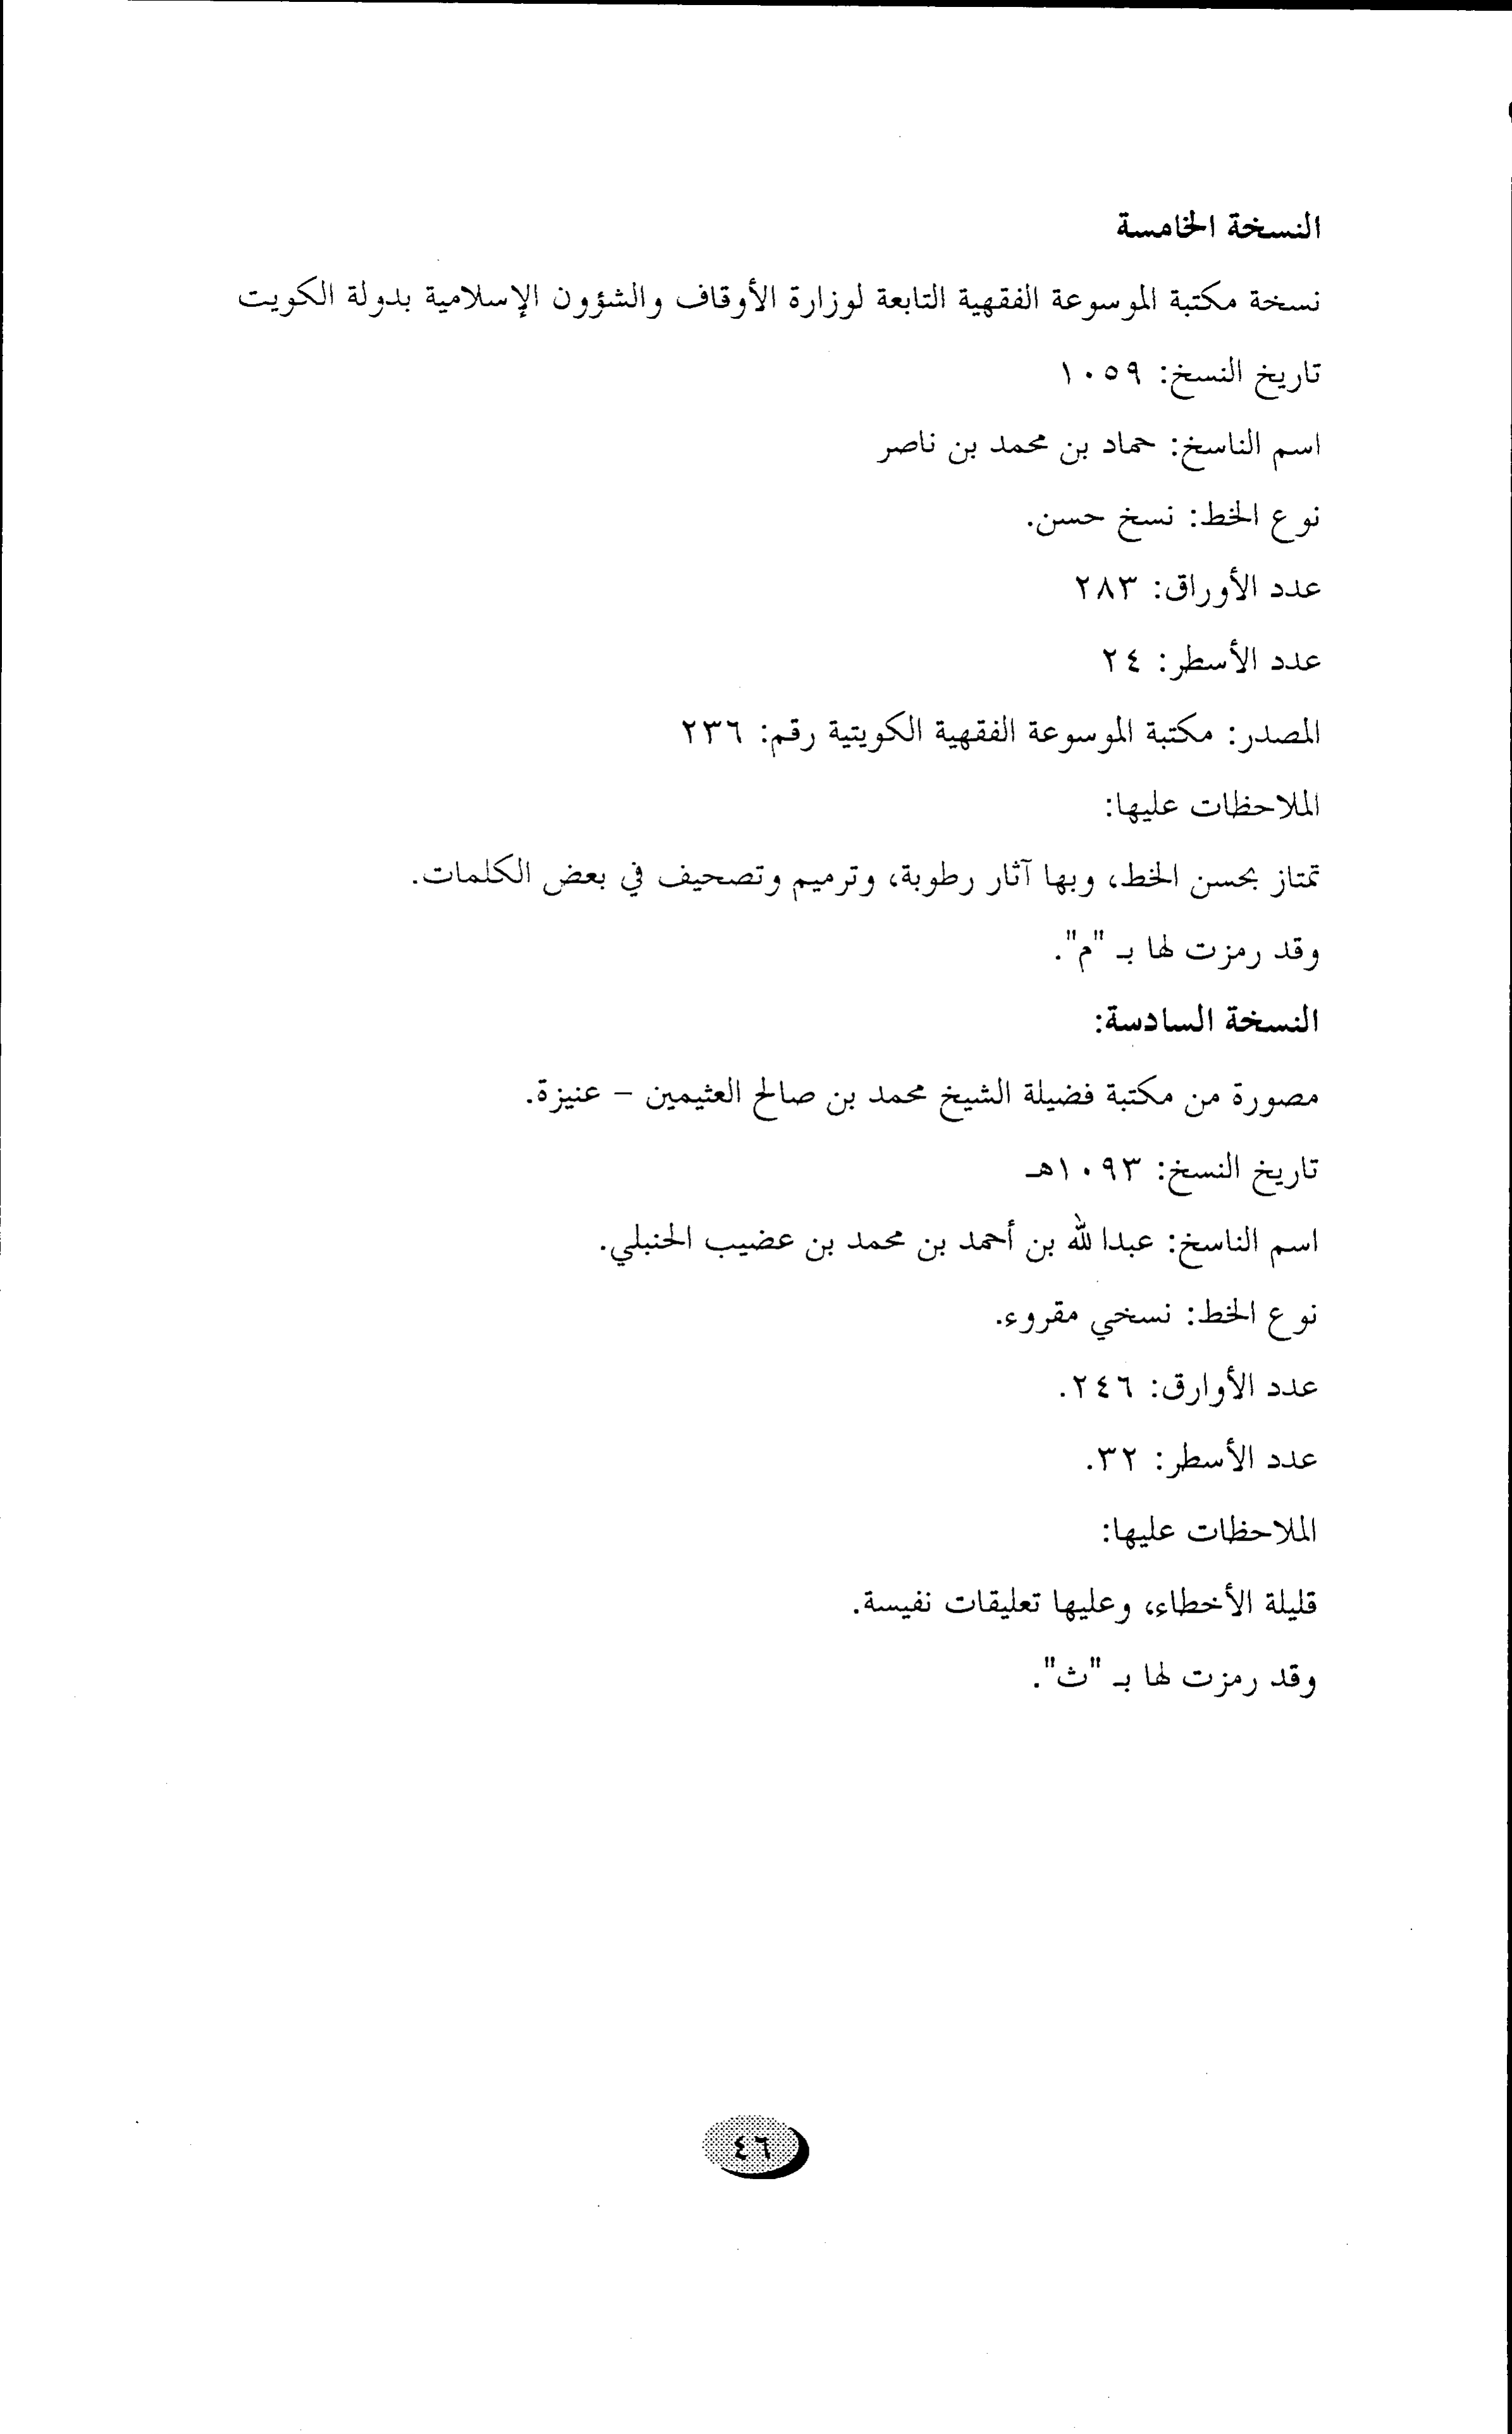 النسخة الخامسة
نسخة مكتبة الموسوعة الفقهية التابعة لوزارة الأوقاف والشؤون الإسلامية بدولة الكويت
تاريخ النسخ: ١٠٥٩
اسم الناسخ: حماد بن محمد بن ناصر
نوع الخط: نسخ حسن.
عدد الأوراق: ٢٨٣
عدد الأسطر: ٢٤
المصدر: مكتبة الموسوعة الفقهية الكويتية رقم: ٢٣٦
الملاحظات عليها:
تمتاز بحسن الخط، وبها آثار رطوبة، وترميم وتصحيف في بعض الكلمات.
وقد رمزت لها بـ "م".
النسخة السادسة:
مصورة من مكتبة فضيلة الشيخ محمد بن صالح العثيمين – عنيزة.
تاريخ النسخ: ١٠٩٣هـ
اسم الناسخ: عبدا لله بن أحمد بن محمد بن عضيب الحنبلي.
نوع الخط: نسخي مقروء.
عدد الأوارق: ٢٤٦.
عدد الأسطر: ٣٢.
الملاحظات عليها:
قليلة الأخطاء، وعليها تعليقات نفيسة.
وقد رمزت لها بـ "ث".
٤٦